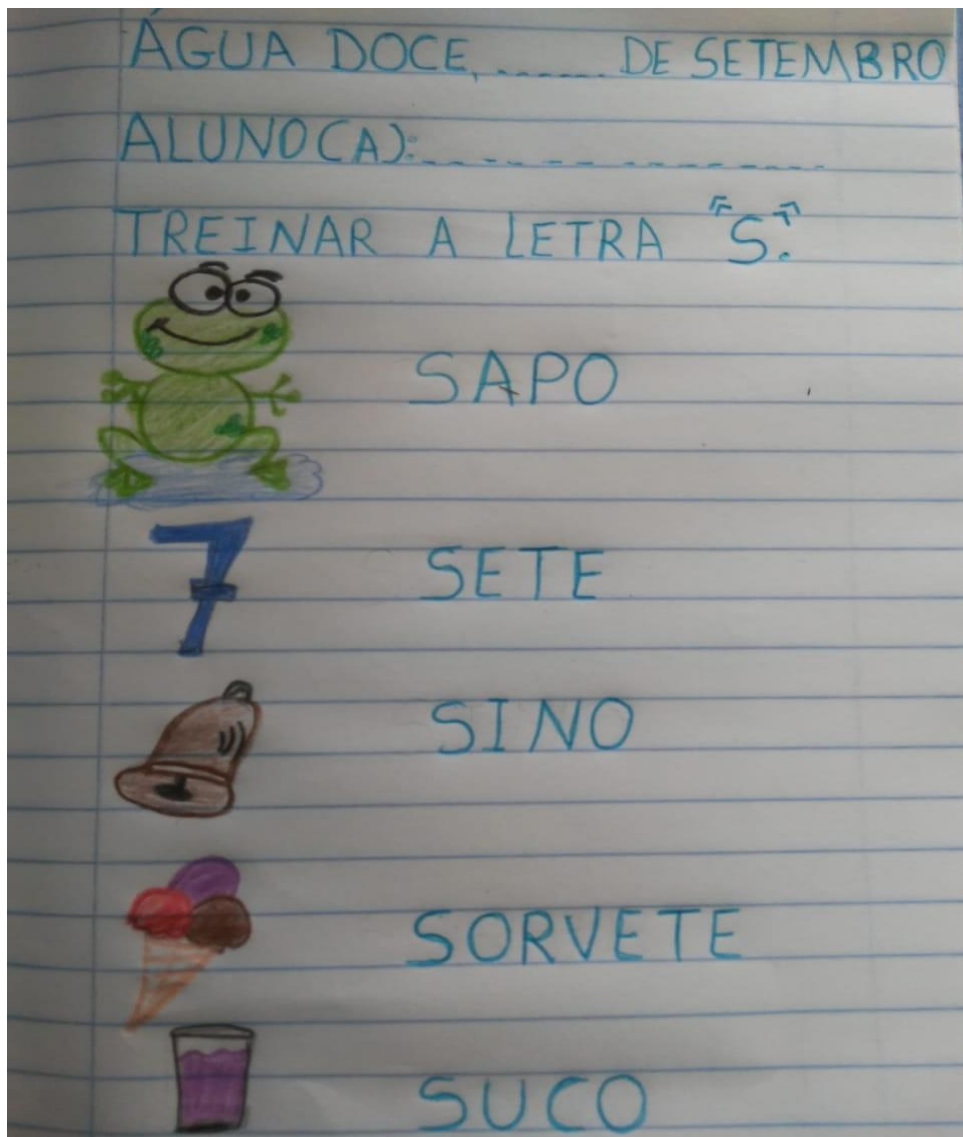 ÁGUA DOCE, ...... DE SETEMBRO
ALUNO(A): _ _ _ _ _ _ _ _ _ _ _ _
TREINAR A LETRA "S".
SAPO
7 SETE
SINO
SORVETE
SUCO